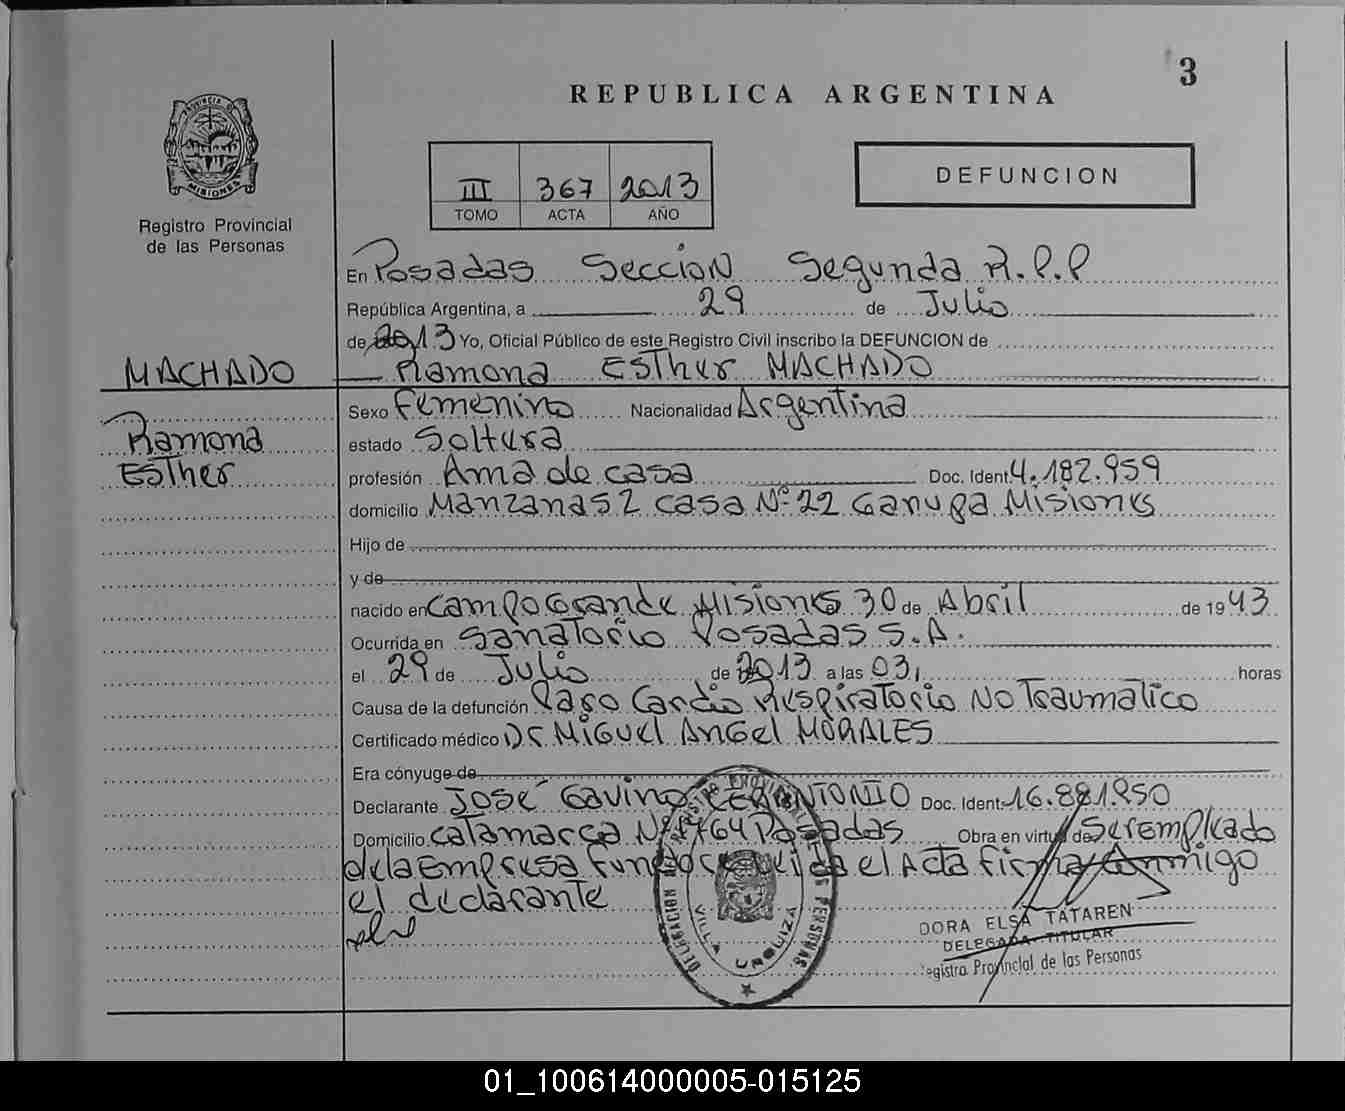 3
REPUBLICA ARGENTINA
PROVINCIA DE
MISIONES
Registro Provincial
de las Personas
III 367 2013
TOMO ACTA AÑO
DEFUNCION
En Posadas Sección Segunda R.P.P
República Argentina, a 29 de Julio
de 2013 Yo, Oficial Público de este Registro Civil inscribo la DEFUNCION de
MACHADO Ramona Esther MACHADO
Sexo Femenino Nacionalidad Argentina
Ramona estado Soltera
Esther profesión Ama de casa Doc. Ident. 4.182.959
domicilio Manzana 52 casa Nº 22 Garupa Misiones
Hijo de
y de
nacido en Campo Grande Misiones 30 de Abril de 1943
Ocurrida en Sanatorio Posadas S.A.
el 29 de Julio de 2013 a las 03, horas
Causa de la defunción Paro Cardio Respiratorio No Traumatico
Certificado médico Dr Miguel Angel MORALES
Era cónyuge de
Declarante José Gavino Doc. Ident. 16.881.850
Domicilio Catamarca Posadas Obra en virtud de Ser Empleado
de la Empresa el Acta firma Conmigo
el declarante
DELEGACION DEL REGISTRO PROVINCIAL DE LAS PERSONAS
VILLA URQUIZA
DORA ELSA TATAREN
DELEGADA TITULAR
Registro Provincial de las Personas
01_100614000005-015125